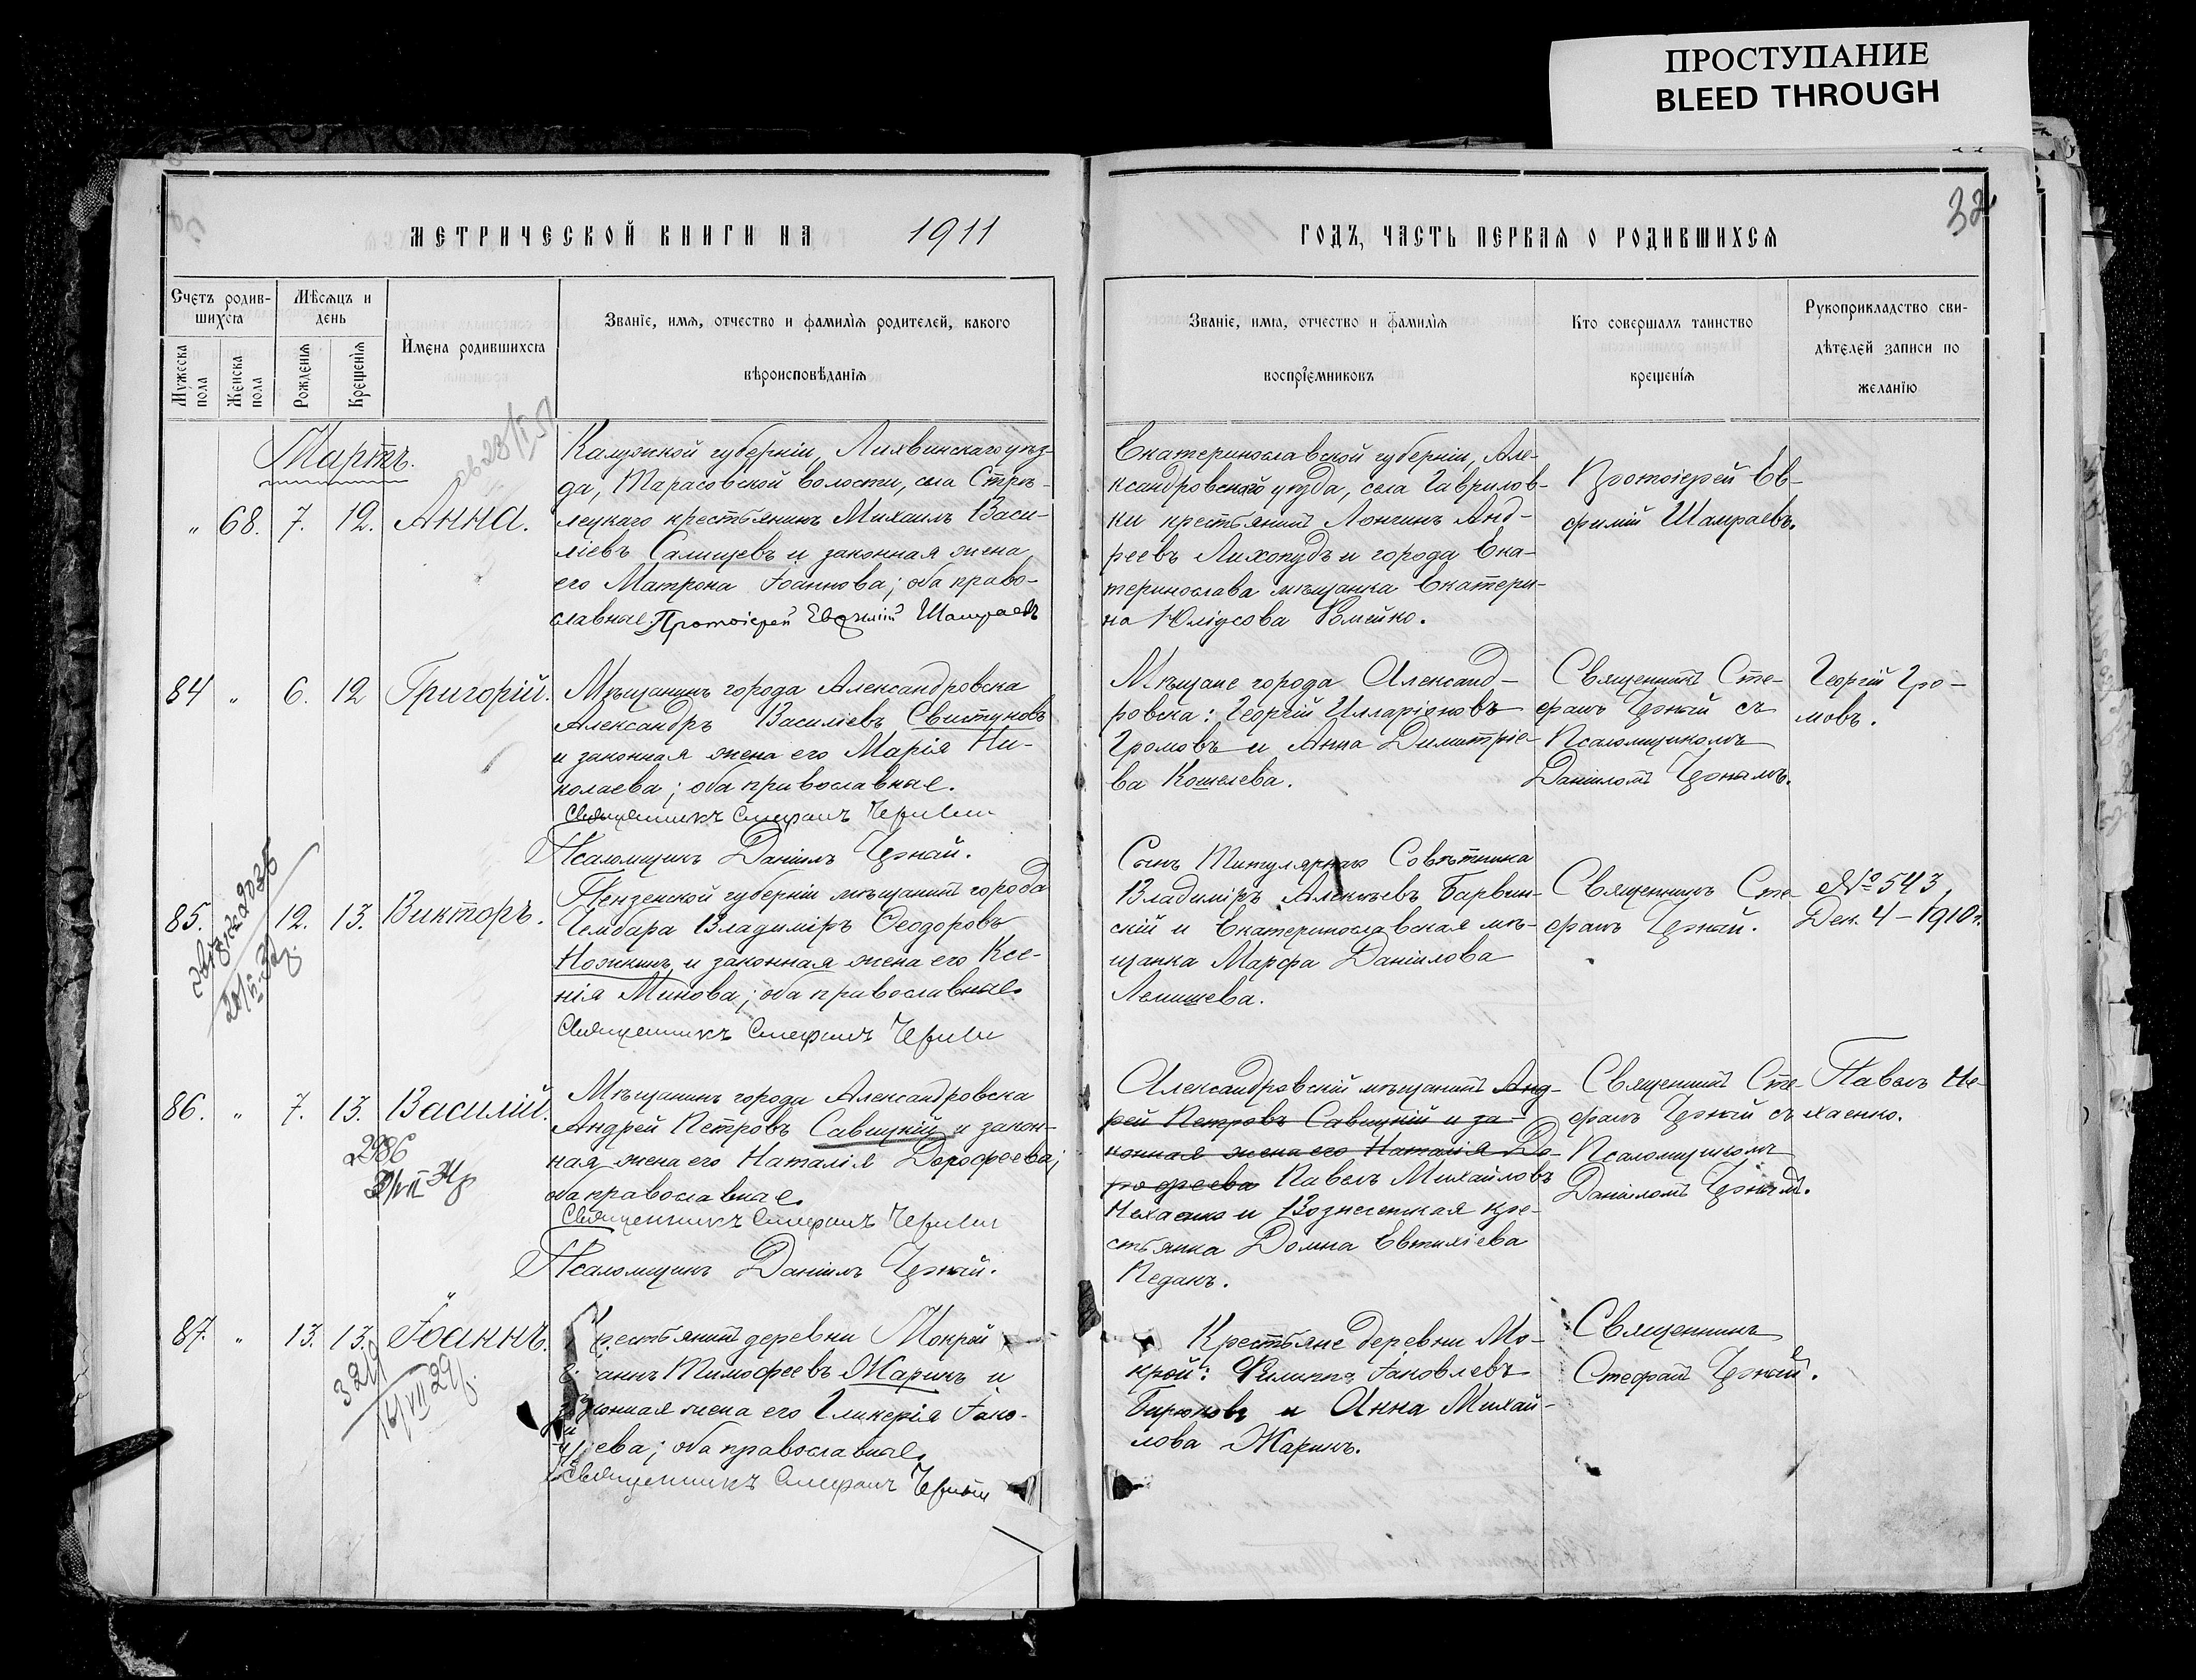 ПРОСТУПАНИЕ
BLEED THROUGH
32
МЕТРИЧЕСКОЙ КНИГИ НА 1911
ГОДЪ, ЧАСТЬ ПЕРВАЯ О РОДИВШИХСЯ
Счетъ родив-
шихся
Мѣсяцъ и
день
Имена родившихся
Званіе, имя, отчество и фамилія родителей, какого
вѣроисповѣданія
Мужеска
пола
Женска
пола
Рожденія
Крещенія
Званіе, имя, отчество и фамилія
воспріемниковъ
Кто совершалъ таинство
крещенія
Рукоприкладство сви-
дѣтелей записи по
желанію
Мартъ.
„ 68. 7. 12. Анна.
Калужской губерніи, Лихвинскаго уѣз-
да, Тарасовской волости, села Стрѣ-
лецкаго крестьянинъ Михаилъ Васи-
ліевъ Салищевъ и законная жена
его Матрона Іоаннова; оба право-
славные. Протоіерей Евфимій Шамраевъ
Екатеринославской губерніи, Але-
ксандровскаго уѣзда, села Гаврилов-
ки крестьянинъ Лонгинъ Анд-
реевъ Лихопудъ и города Ека-
теринослава мѣщанка Екатери-
на Юліусова Ромейко.
Протоіерей Ев-
фимій Шамраевъ.
84 „ 6. 12 Григорій.
Мѣщанинъ города Александровска
Александръ Василіевъ Свистуновъ
и законная жена его Марія Ни-
колаева; оба православные.
Священникъ Стефанъ Черный
Псаломщикъ Даніилъ Црный.
Мѣщане города Александ-
ровска: Георгій Илларіоновъ
Громовъ и Анна Димитріе-
ва Кошелева.
Священникъ Сте-
фанъ Црный съ
Псаломщикомъ
Даніиломъ Црнымъ.
Георгій Гро-
мовъ.
85. 12. 13. Викторъ.
Пензенской губерніи мѣщанинъ города
Чембара Владиміръ Ѳеодоровъ
Ножкинъ и законная жена его Ксе-
нія Минова; оба православные.
Священникъ Стефанъ Черный
Сынъ Титулярнаго Совѣтника
Владиміръ Алексѣевъ Барвин-
скій и Екатеринославская мѣ-
щанка Марфа Даніилова
Лемишева.
Священникъ Сте-
фанъ Црный.
№ 543,
Дек. 4 – 1910 г.
86. „ 7. 13. Василій.
2986
Мѣщанинъ города Александровска
Андрей Петровъ Савицкій и закон-
ная жена его Наталія Дорофеева;
оба православные.
Священникъ Стефанъ Черный
Псаломщикъ Даніилъ Црный.
Александровскій мѣщанинъ Анд-
рей Петровъ Савицкій и за-
конная жена его Наталія До-
рофеева Павелъ Михайловъ
Нехаенко и Вознесенская кре-
стьянка Домна Евтихіева
Педанъ.
Священникъ Сте-
фанъ Црный съ
Псаломщикомъ
Даніиломъ Црнымъ.
Павелъ Не-
хаенко.
87. „ 13. 13. Іоаннъ.
Крестьянинъ деревни Мокрой
аннъ Тимофеевъ Жаринъ и
конная жена его Гликерія Іако-
ева; оба православные.
Священникъ Стефанъ Черный
Крестьяне деревни Мо-
крой: Филиппъ Іаковлевъ
Бирюковъ и Анна Михай-
лова Жаринъ.
Священникъ
Стефанъ Црный.